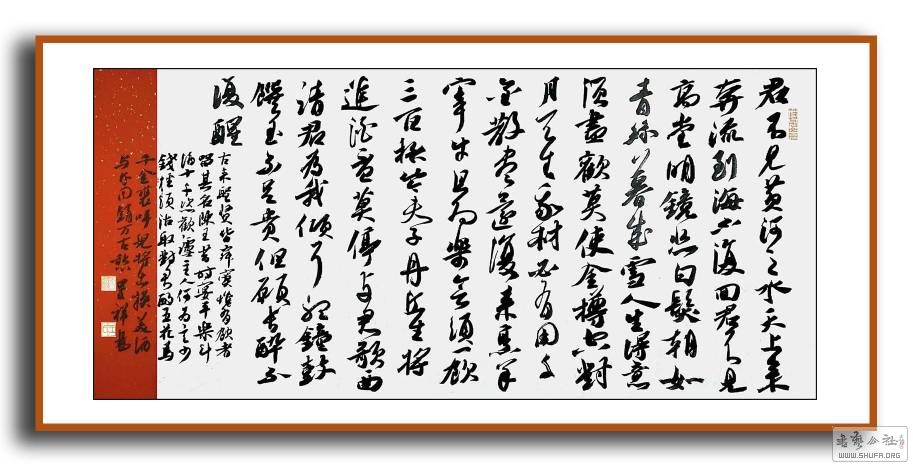 君不见黄河之水天上来
奔流到海不复回君不见
高堂明镜悲白髮朝如
青丝暮成雪人生得意
须尽欢莫使金樽空对
月天生我材必有用千
金散尽还复来烹羊
宰牛且为乐会须一饮
三百杯岑夫子丹丘生将
进酒君莫停与君歌一曲
请君为我倾耳听钟鼓
馔玉不足贵但愿长醉不
复醒
古来圣贤皆寂寞惟有饮者
留其名陈王昔时宴平乐斗
酒十千恣欢谑主人何为言少
钱径须沽取对君酌五花马
千金裘呼儿将出换美酒
与尔同销万古愁
WWW.SHUFA.ORG